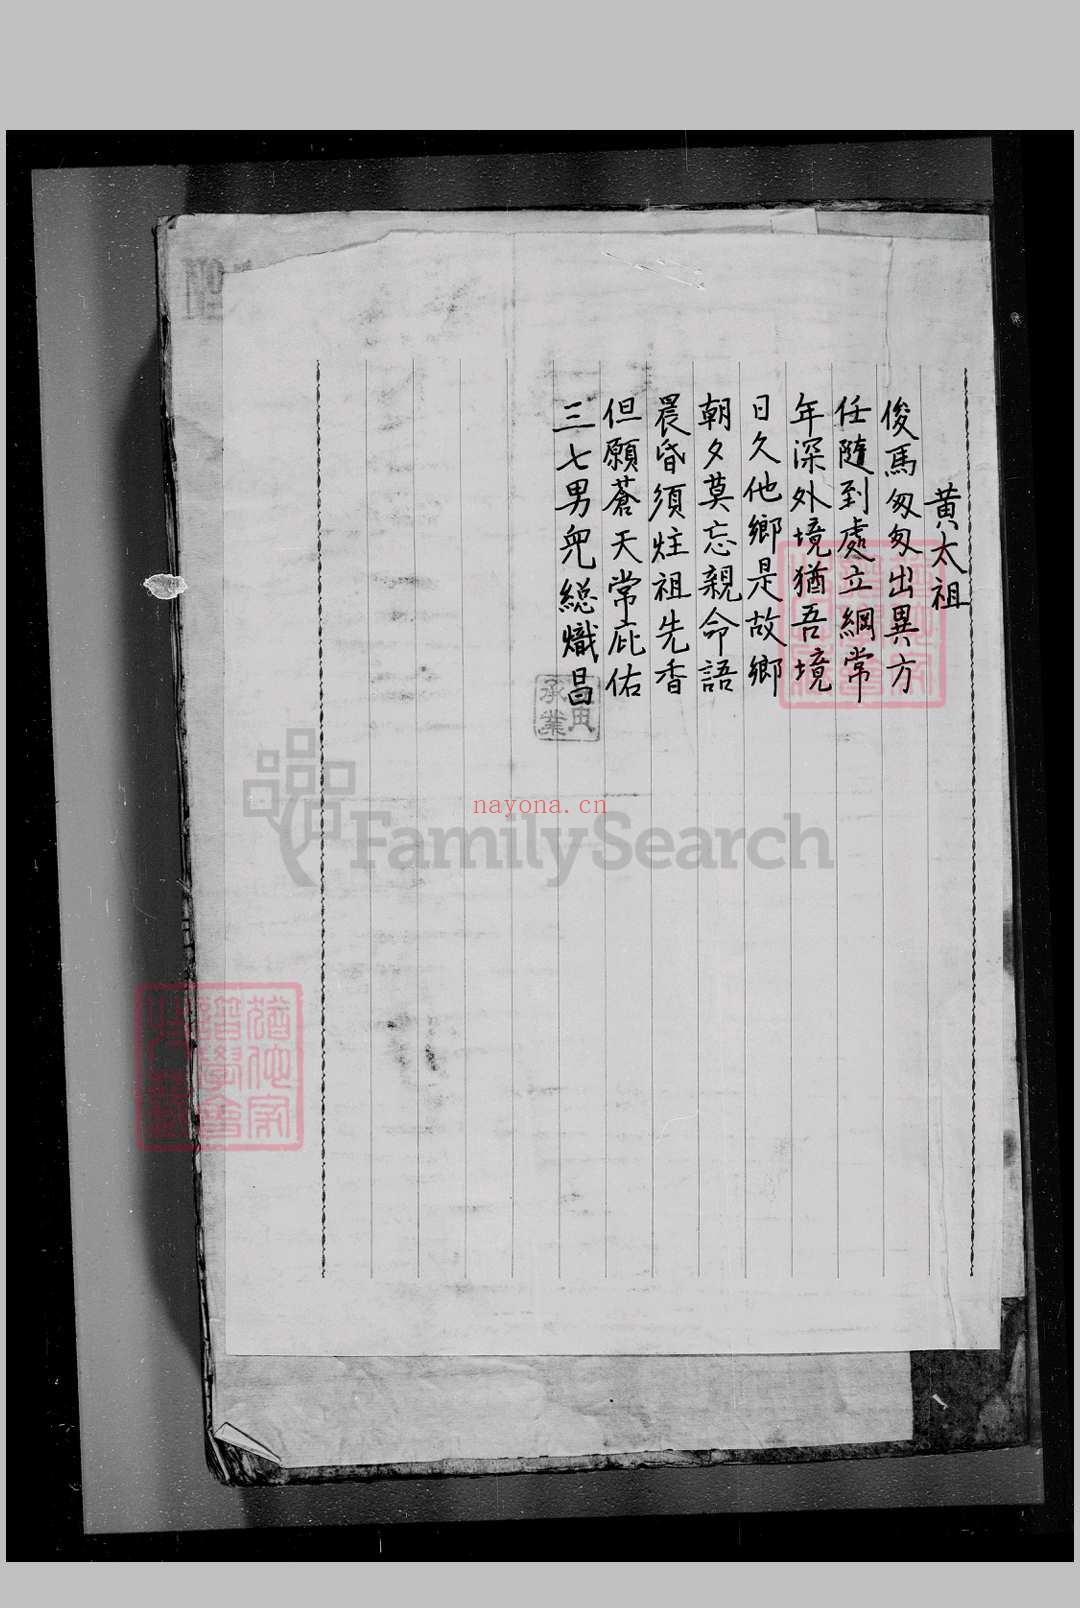 黄太祖
俊馬匆匆出異方
任隨到處立綱常
年深外境猶吾境
日久他鄉是故鄉
朝夕莫忘親命語
晨昏須炷祖先香
但願蒼天常庇佑
三七男兒総熾昌
承業
FamilySearch
nayona.cn
譜學會